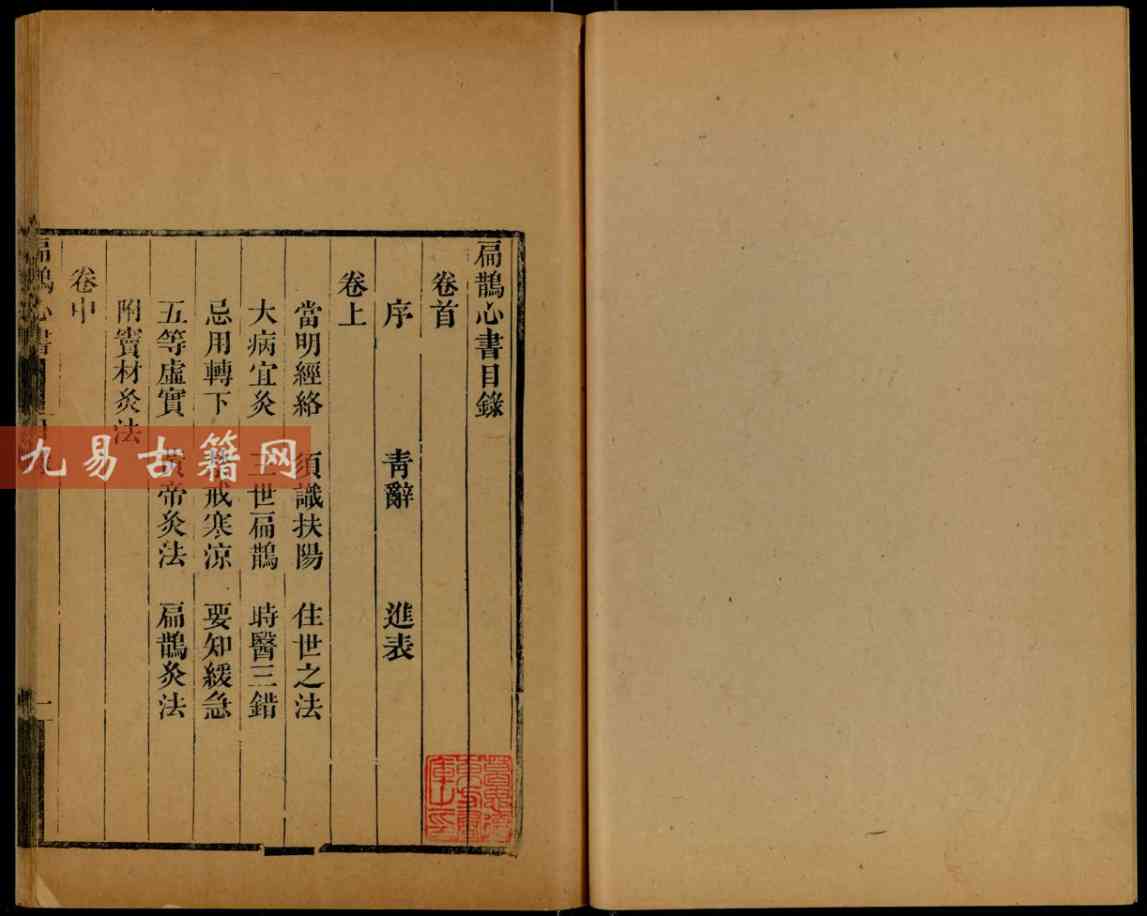 扁鵲心書目錄
卷首
序 青辭 進表
卷上
當明經絡 須識扶陽 住世之法
大病宜灸 三世扁鵲 時醫三錯
忌用轉下 戒寒涼 要知緩急
五等虛實 黃帝灸法 扁鵲灸法
附竇材灸法
卷中
扁鵲心書
一
九易古籍网